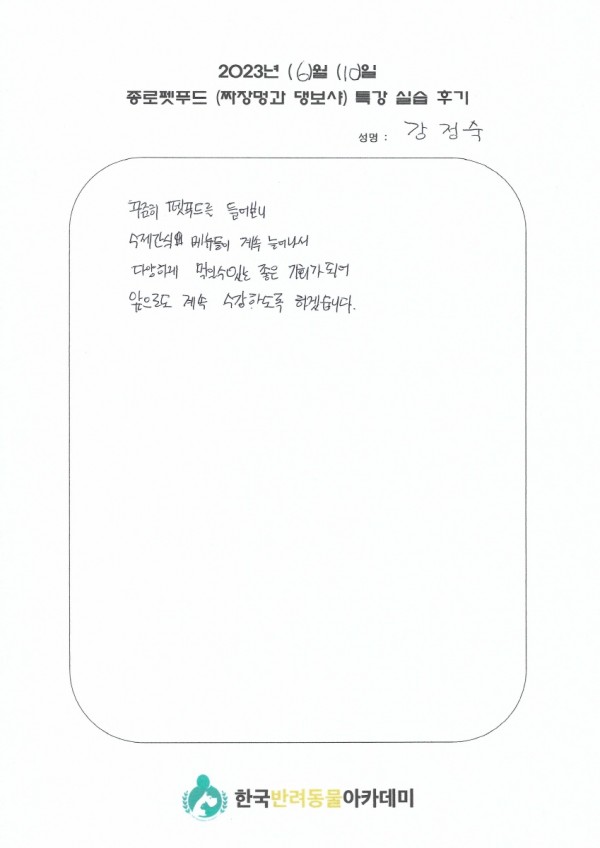 2023년 (6)월 (10)일
종로펫푸드 (짜장멍과 댕보샤) 특강 실습 후기
성명 : 강정숙
꾸준히 펫푸드를 들어보니
수제간식의 메뉴들이 계속 늘어나서
다양하게 먹일수있는 좋은 기회가 되어
앞으로도 계속 수강하도록 하겠습니다.
한국반려동물아카데미